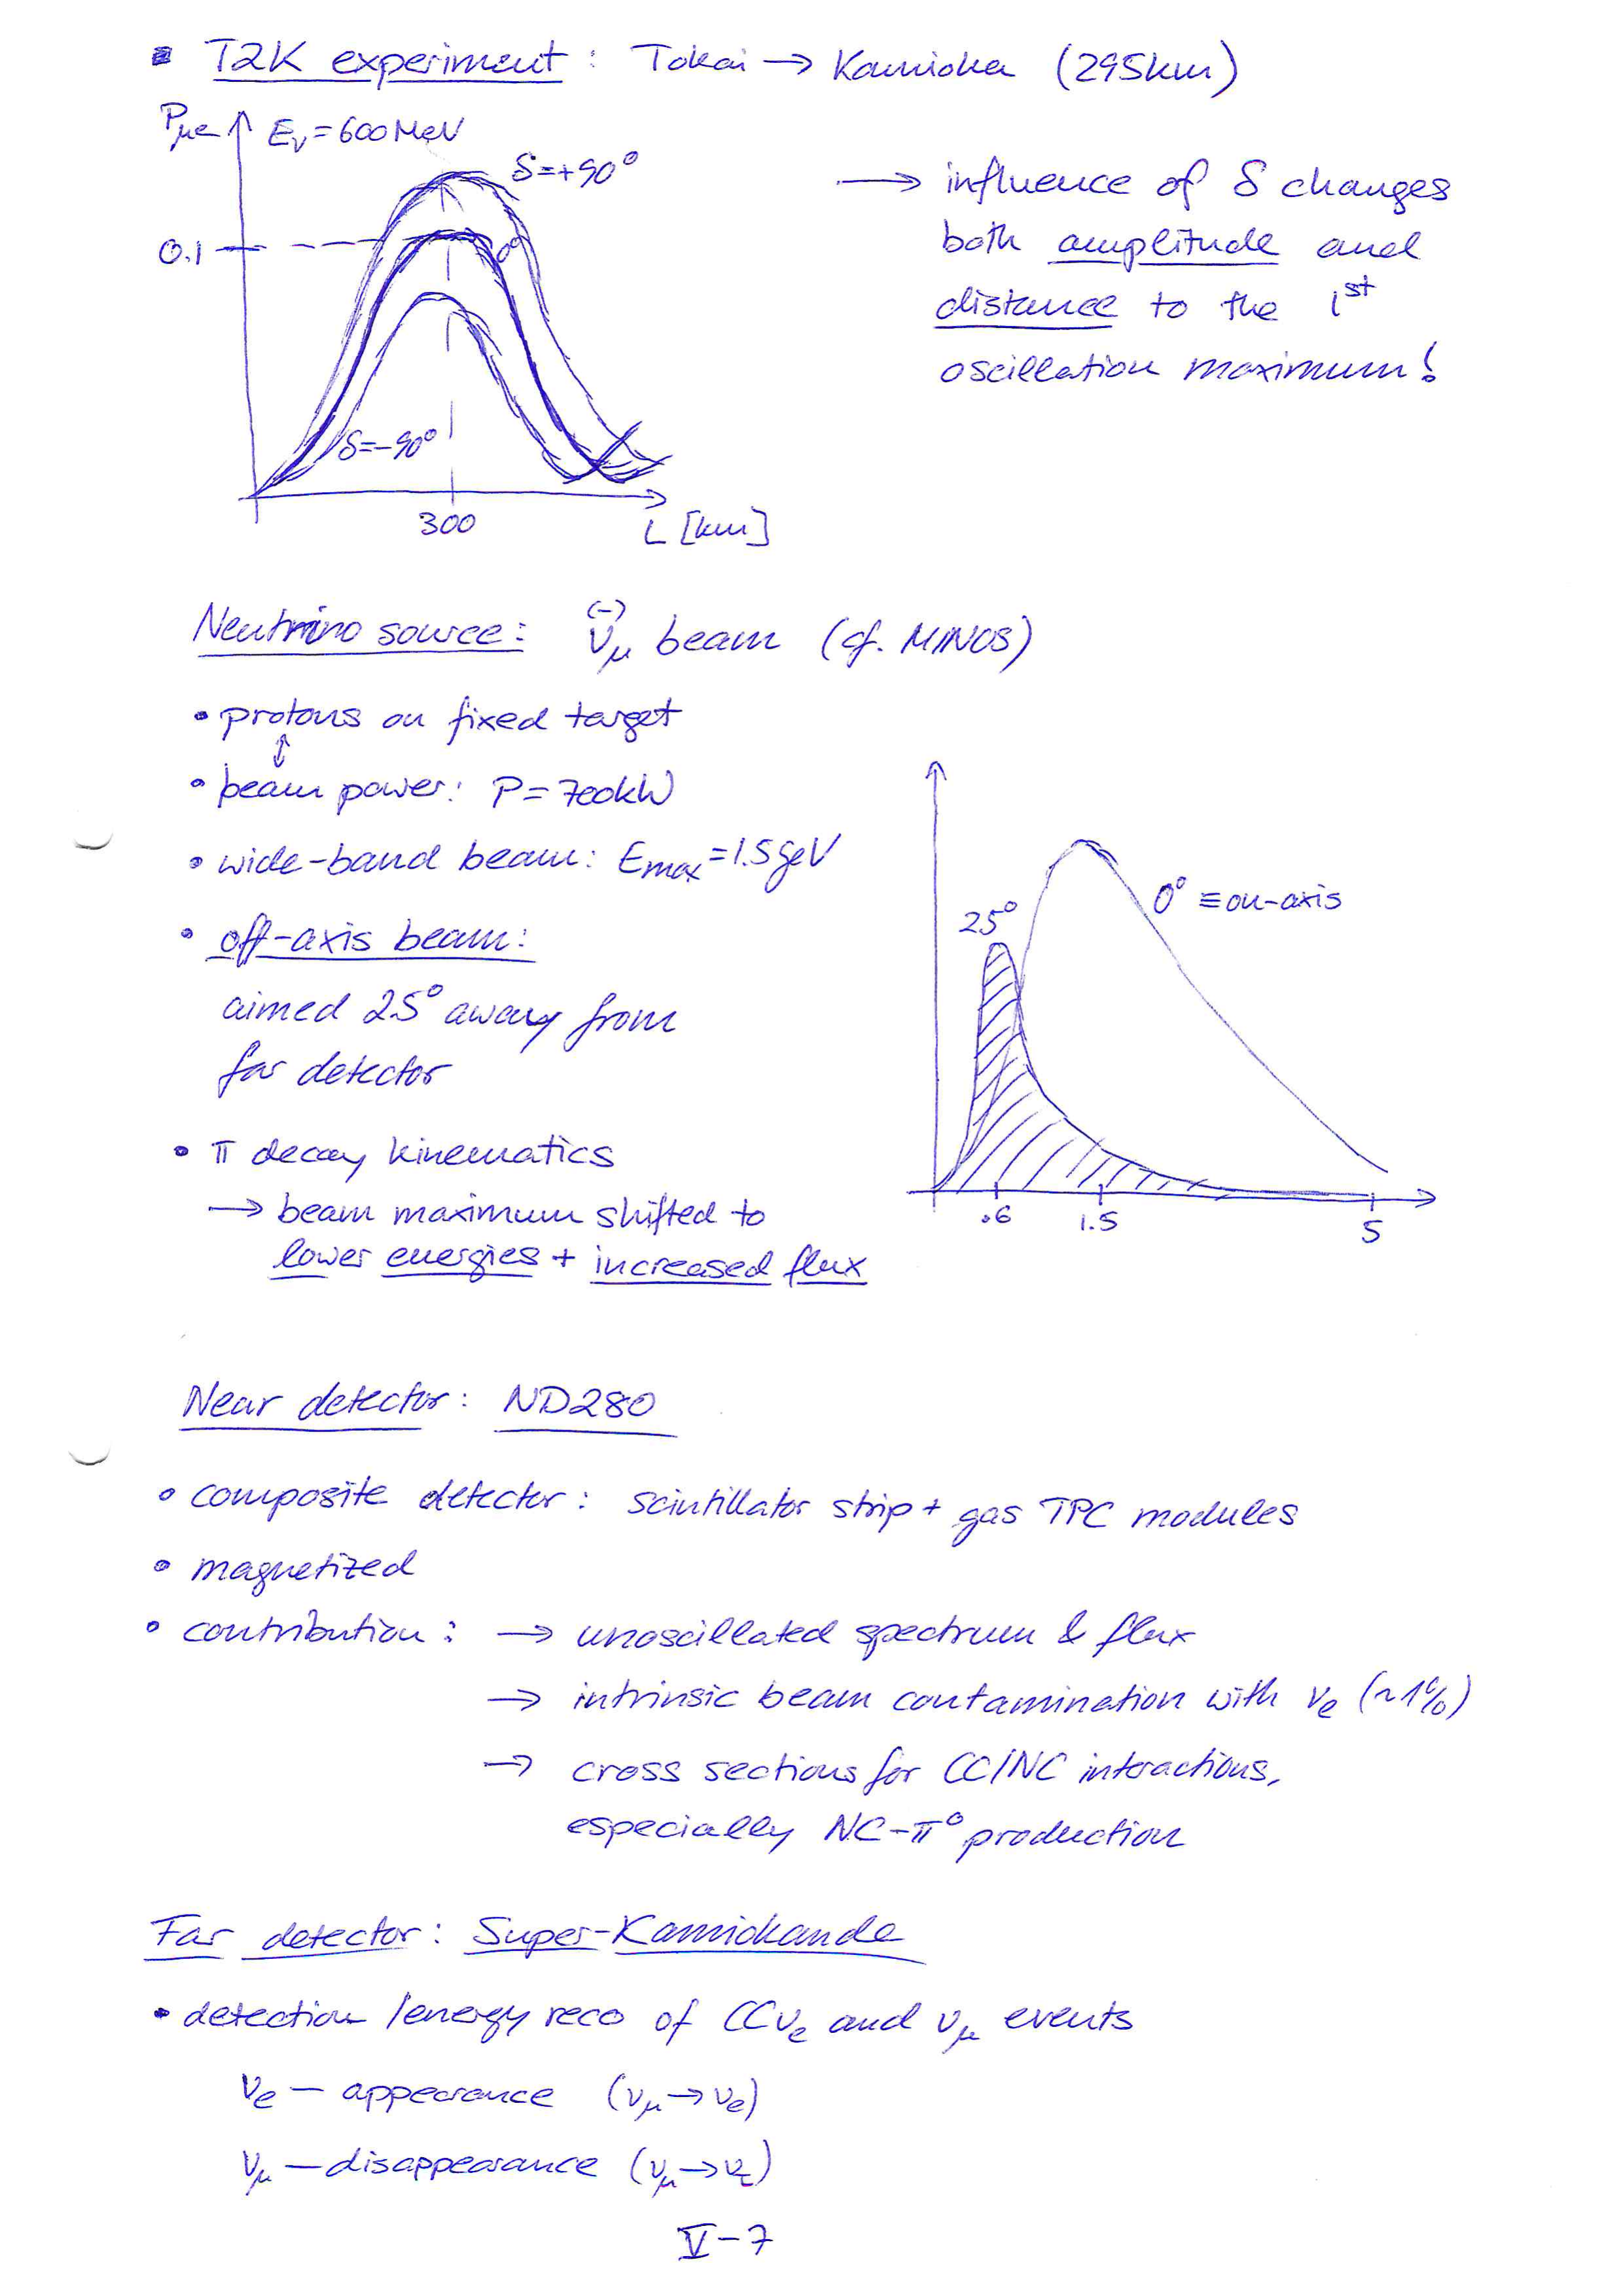 ▪ T2K experiment: Tokai → Kamioka (295km)
Pμe
Eν = 600 MeV
δ=+90°
0.1
0°
δ=-90°
300
L [km]
→ influence of δ changes
both amplitude and
distance to the 1st
oscillation maximum!
Neutrino source: (-)νμ beam (cf. MINOS)
• protons on fixed target
↕
• beam power: P = 700kW
• wide-band beam: Emax = 1.5 GeV
• off-axis beam:
aimed 25° away from
far detector
• π decay kinematics
→ beam maximum shifted to
lower energies + increased flux
25°
0° ≡ on-axis
.6
1.5
5
Near detector: ND280
• composite detector: scintillator strip + gas TPC modules
• magnetized
• contribution: → unoscillated spectrum & flux
→ intrinsic beam contamination with νe (~1%)
→ cross sections for CC/NC interactions,
especially NC-π° production
Far detector: Super-Kamiokande
• detection / energy reco of CC νe and νμ events
νe – appearance (νμ → νe)
νμ – disappearance (νμ → ντ)
V-7